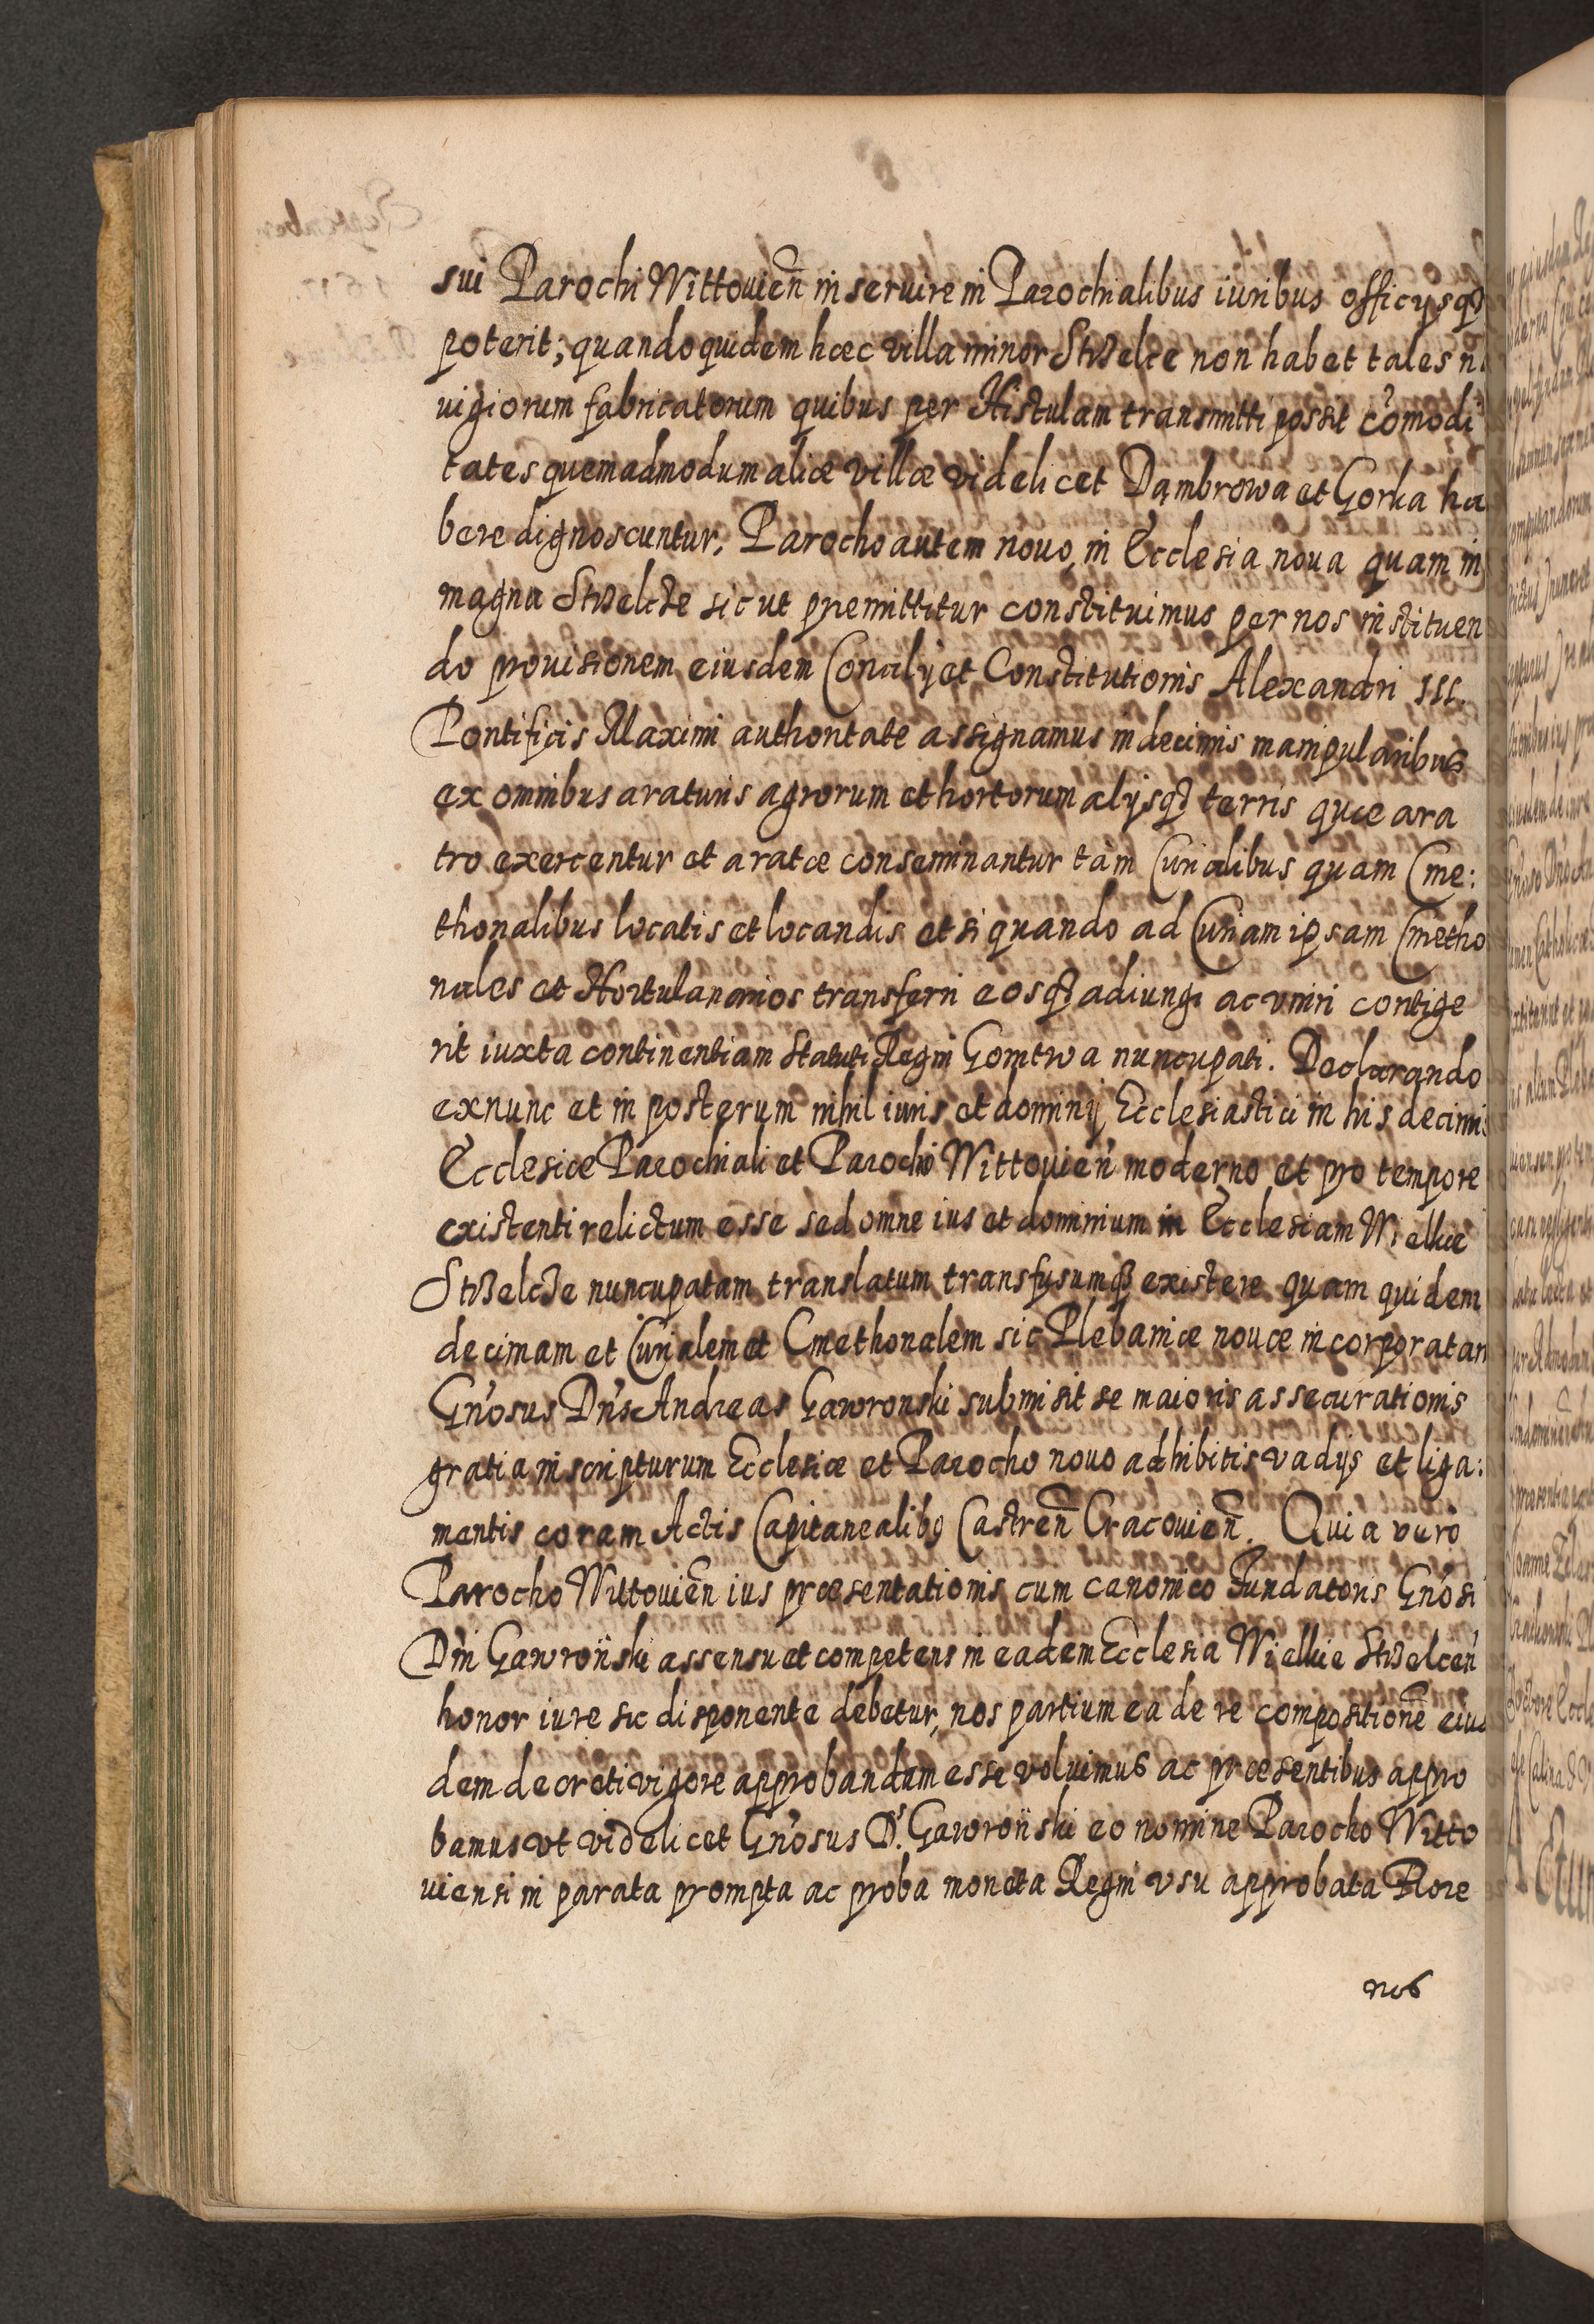 sui Parochi Wittouien̄ inseruire in Parochialibus iuribus officysqȝ
poterit; quandoquidem hæc villa minor Strzelce non habet tales na
uigiorum fabricatorum quibus per Histulam transmitti possit cōmodi
tates quemadmodum aliæ villæ videlicet Dąmbrowa et Gorka ha
bere dignoscuntur. Parocho autem nouo, in Ecclesia noua quam in
magna Strzelcze sicut premittitur constituimus per nos instituen
do prouisionem eiusdem Concilÿ et Constitutionis Alexandri III.
Pontificis Maximi authoritate assignamus in decimis manipularibus
ex omnibus araturis agrorum et hortorum alysqȝ terris quæ ara
tro exercentur et aratæ conseminantur tàm Curialibus quam Cme:
thonalibus locatis et locandis et si quando ad Curiam ipsam Cmetho
nales et Hortulanarios transferri eosqȝ adiungi ac vniri contige
rit iuxta continentiam Statuti Regni Gomtwa nuncupati. Declarando
exnunc et in posterum nihil iuris et dominÿ Ecclesiastici in his decimis
Ecclesiæ Parochiali et Parocho Wittouien̄ moderno et pro tempore
existenti relictum esse sed omne ius et dominium in Ecclesiam Wielkie
Strzelcze nuncupatam translatum transfusumqȝ existere quam quidem
decimam et Curialem et Cmethonalem sic Plebaniæ nouæ incorporatam
Gn̄osus Dn̄s Andreas Gawronski submisit se maioris assecurationis
gratia inscripturum Ecclesiæ et Parocho nouo adhibitis vadijs et liga:
mentis coram Actis Capitanealibȝ Castren̄ Cracouien̄. Quia vero
Parocho Wittouien̄ ius præsentationis cum canonico Fundatoris Gn̄osi
Dn̄i Gawroński assensu et competens in eadem Ecclesia Wielkie Strzelcen̄
honor iure sic disponente debetur, nos partium ea de re compositionē eius
dem decreti vigore approbandam esse voluimus ac præsentibus appro
bamus vt videlicet Gn̄osus D. Gawroński eo nomine Parocho Witto
uiensi in parata prompta ac proba moneta Regni vsu approbata Flore
nos